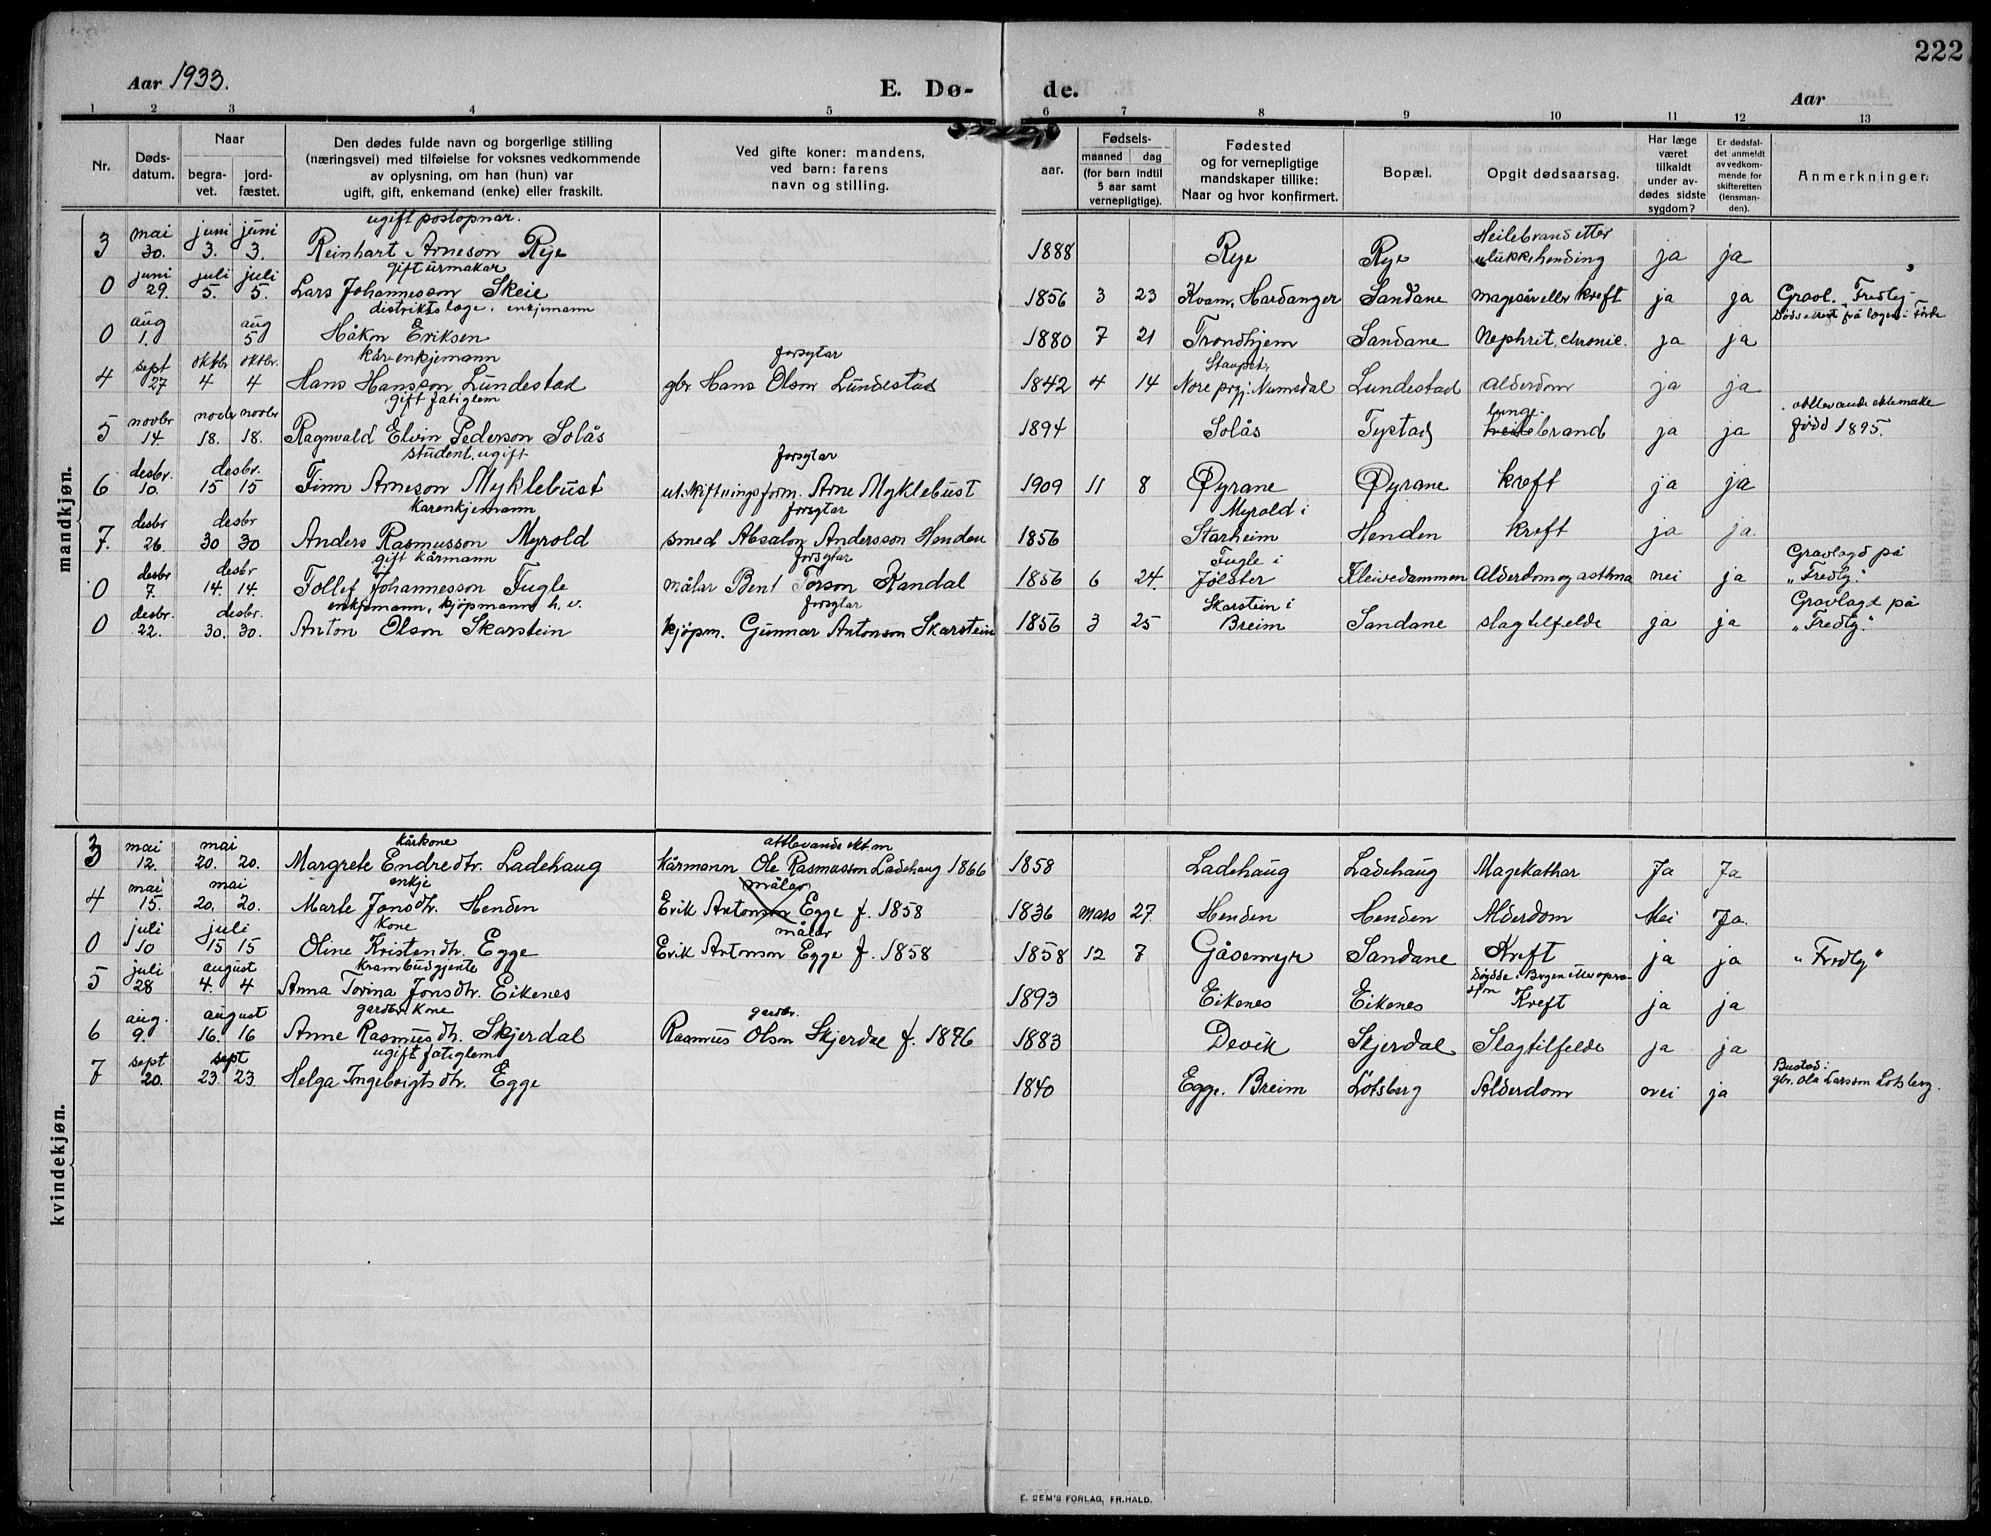 222
Aar 1933. E. Dø- de. Aar
1 2 3 4 5 6 7 8 9 10 11 12 13
Nr.
Døds-
datum.
Naar
begra-
vet.
jord-
fæstet.
Den dødes fulde navn og borgerlige stilling
(næringsvei) med tilføielse for voksnes vedkommende
av oplysning, om han (hun) var
ugift, gift, enkemand (enke) eller fraskilt.
Ved gifte koner: mandens,
ved barn: farens
navn og stilling.
Fødsels-
aar.
maaned dag
(for barn indtil
5 aar samt
vernepligtige).
Fødested
og for vernepligtige
mandskaper tillike:
Naar og hvor konfirmert.
Bopæl.
Opgit dødsaarsag.
Har læge
været
tilkaldt
under av-
dødes sidste
sygdom?
Er dødsfal-
det anmeldt
av vedkom-
mende for
skifteretten
(lensman-
den).
Anmerkninger.
mandkjøn.
ugift postopnar. Heilebrand etter
3 mai 30. juni 3. juni 3. Reinhart Arneson Rye 1888 Rye Rye ulukkehending ja ja
gift urmakar
0 juni 29. juli 5. juli 5. Lars Johannesson Skeie 1856 3 23 Kvam, Hardanger Sandane magesår eller kreft ja ja Gravl. "Fredly"
distriktslæge, enkjemann Dødsattest frå lægen i Førde
0 aug 1. aug 5 Håkon Eriksen 1880 7 21 Trondhjem Sandane Nephrit. chronic. ja ja
kår enkjemann forsytar
4 sept 27 oktbr 4 oktbr. 4 Hans Hansson Lundestad gbr Hans Olson Lundestad 1842 4 14 Nore prgj. Numsdal Lundestad Alderdom ja ja
gift fatiglem lunge- attlevande ektemake
5 novbr 14. novbr 18. novbr 18. Ragnvald Elvin Pederson Solås 1894 Solås Tystad heilebrand ja ja fødd 1895.
student, ugift forsytar
6 desbr. 10. desbr. 15 15 Finn Arneson Myklebust utskiftningsform. Arne Myklebust 1909 11 8 Øyrane Øyrane kreft ja ja
Kårenkjemann forsytar Myrold i
7. desbr 26. desbr 30 30 Anders Rasmusson Myrold smed Absalon Andersson Henden 1856 Starheim Henden kreft ja ja.
gift kårmann forsytar Fugle i Gravlagd på
0 desbr 7. desbr 14. 14. Tollef Johannesson Fugle målar Bent Torson Randal 1856 6 24. Jølster Kleivedammen Alderdom og asthma nei ja "Fredly."
enkjemann, kjøpmann h. v. forsytar Skarstein i Gravlagd på
0 desbr. 22. desbr. 30. 30. Anton Olson Skarstein kjøpm. Gunnar Antonson Skarstein 1856 3 25 Breim Sandane slagtilfelde ja ja "Fredly."
kvindekjøn.
kårkone attlevande ekt.m
3 mai 12. mai 20. 20. Margrete Endredtr. Ladehaug kårmann Ole Rasmusson Ladehaug 1866 1858 Ladehaug Ladehaug Magekathar Ja Ja
enkje målar
4 mai 15. mai 20. 20. Marte Jonsdtr. Henden Erik Antonson Egge f. 1858 1836 mars 27. Henden Henden Alderdom Nei Ja.
kone målar
0 juli 10 juli 15 15 Oline Kristendtr. Egge Erik Antonson Egge f. 1858 1858 12 7 Gåsemyr Sandane Kreft ja ja "Fredly"
krambudgjente Døydde i Bergen etter opera-
5 juli 28 august 4. 4 Anna Torina Jonsdtr. Eikenes 1893 Eikenes Eikenes Kreft ja ja
gardbr. kone gardbr.
6 aug. 9. august 16. 16 Anne Rasmusdtr. Skjerdal Rasmus Olson Skjerdal f. 1876 1883 Devik Skjerdal Slagtilfelde ja ja
ugift fatiglem Bustad:
7 sept 20. sept 23. 23. Helga Ingebrigtsdtr. Egge 1840 Egge. Breim Lotsberg Alderdom nei ja gbr. Ola Larsson Lotsberg.
E. SEM'S FORLAG, FR.HALD.